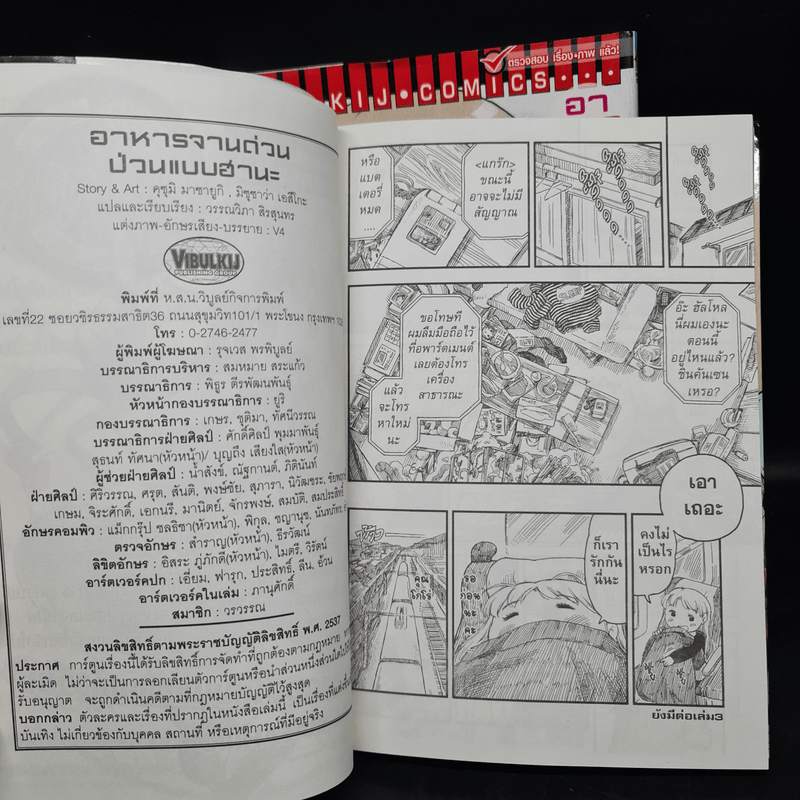 ตรวจสอบ เรื่อง•ภาพ แล้ว!
KIJ•COMICS
อา
อาหารจานด่วน
ป่วนแบบฮานะ
Story & Art : คุซุมิ มาซายูกิ , มิซุซาว่า เอสึโกะ
แปลและเรียบเรียง : วรรณวิภา สิรสุนทร
แต่งภาพ-อักษรเสียง-บรรยาย : V4
VIBULKIJ
PUBLISHING GROUP
พิมพ์ที่ ห.ส.น.วิบูลย์กิจการพิมพ์
เลขที่22 ซอยวชิรธรรมสาธิต36 ถนนสุขุมวิท101/1 พระโขนง กรุงเทพฯ
โทร : 0-2746-2477
ผู้พิมพ์ผู้โฆษณา : รุจเวส พรพิบูลย์
บรรณาธิการบริหาร : สมหมาย สระแก้ว
บรรณาธิการ : พิธูร ตีรพัฒนพันธุ์
หัวหน้ากองบรรณาธิการ : ยูริ
กองบรรณาธิการ : เกษร, ชุติมา, ทัศนีวรรณ
บรรณาธิการฝ่ายศิลป์ : ศักดิ์ศิลป์ พุมมาพันธุ์
สุธนท์ ทัศนา(หัวหน้า)/ บุญถึง เสียงใส(หัวหน้า)
ผู้ช่วยฝ่ายศิลป์ : น้ำสังข์, ณัฐกานต์, ภิตินันท์
ฝ่ายศิลป์ : ศิริวรรณ, ศรุต, สันติ, พงษ์ชัย, สุภารา, นิวัฒชระ,
เกษม, จิระศักดิ์, เอกนรี, มานิตย์, จักรพงษ์, สมบัติ, สมประสิทธิ์
อักษรคอมพิว : แม็กกรุ๊ป ชลธิชา(หัวหน้า), พิกุล, ชญานุช,
ตรวจอักษร : สำราญ(หัวหน้า), ธีรวัฒน์
ลิขิตอักษร : อิสระ ภู่ภักดี(หัวหน้า), ไมตรี, วิรัตน์
อาร์ตเวอร์คปก : เอี่ยม, ฟารุก, ประสิทธิ์, ลีน, อ้วน
อาร์ตเวอร์คในเล่ม : ภานุศักดิ์
สมาชิก : วรวรรณ
สงวนลิขสิทธิ์ตามพระราชบัญญัติลิขสิทธิ์ พ.ศ. 2537
ประกาศ การ์ตูนเรื่องนี้ได้รับลิขสิทธิ์การจัดทำที่ถูกต้องตามกฎหมาย
ผู้ละเมิด ไม่ว่าจะเป็นการลอกเลียนตัวการ์ตูนหรือนำส่วนหนึ่งส่วนใด
รับอนุญาต จะถูกดำเนินคดีตามที่กฎหมายบัญญัติไว้สูงสุด
บอกกล่าว ตัวละครและเรื่องที่ปรากฏในหนังสือเล่มนี้ เป็นเรื่องที่แต่งขึ้น
บันเทิง ไม่เกี่ยวข้องกับบุคคล สถานที่ หรือเหตุการณ์ที่มีอยู่จริง
หรือ
แบต
เตอรี่
หมด
....
<แกร๊ก>
ขณะนี้
อาจจะไม่มี
สัญญาณ
อ๊ะ ฮัลโหล
นี่ผมเองนะ
ตอนนี้
อยู่ไหนแล้ว?
ชินคันเซน
เหรอ?
ขอโทษที
ผมลืมมือถือไว้
ที่อพาร์ตเมนต์
เลยต้องโทร
เครื่อง
สาธารณะ
แล้ว
จะโทร
หาใหม่
นะ
เอา
เถอะ
คงไม่
เป็นไร
หรอก
ก็เรา
รักกัน
นี่นะ
รอ
ก่อน
นะ
คะ
คุณ
โกโร่
ยังมีต่อเล่ม3